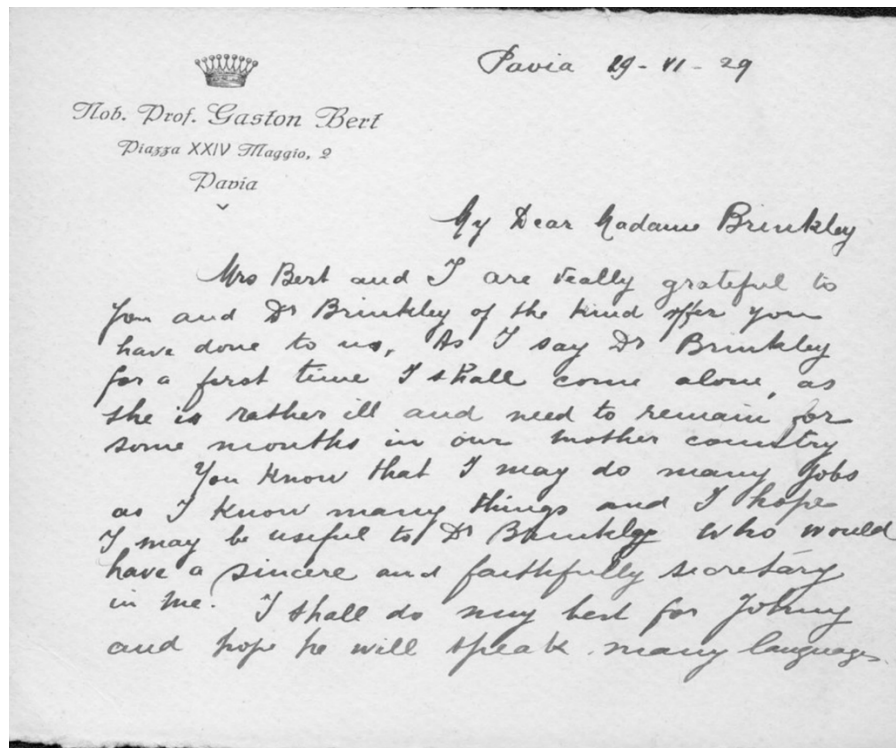 Pavia 29-VI-29
Nob. Prof. Gaston Bert
Piazza XXIV Maggio, 2
Pavia
My Dear Madame Brinkley
Mrs Bert and I are really grateful to
you and Dr Brinkley of the kind offer you
have done to us. As I say Dr Brinkley
for a first time I shall come alone, as
she is rather ill and need to remain for
some months in our mother country
You know that I may do many jobs
as I know many things and I hope
I may be useful to Dr Brinkley who would
have a sincere and faithfully secretary
in me. I shall do my best for Johny
and hope he will speak many languages.